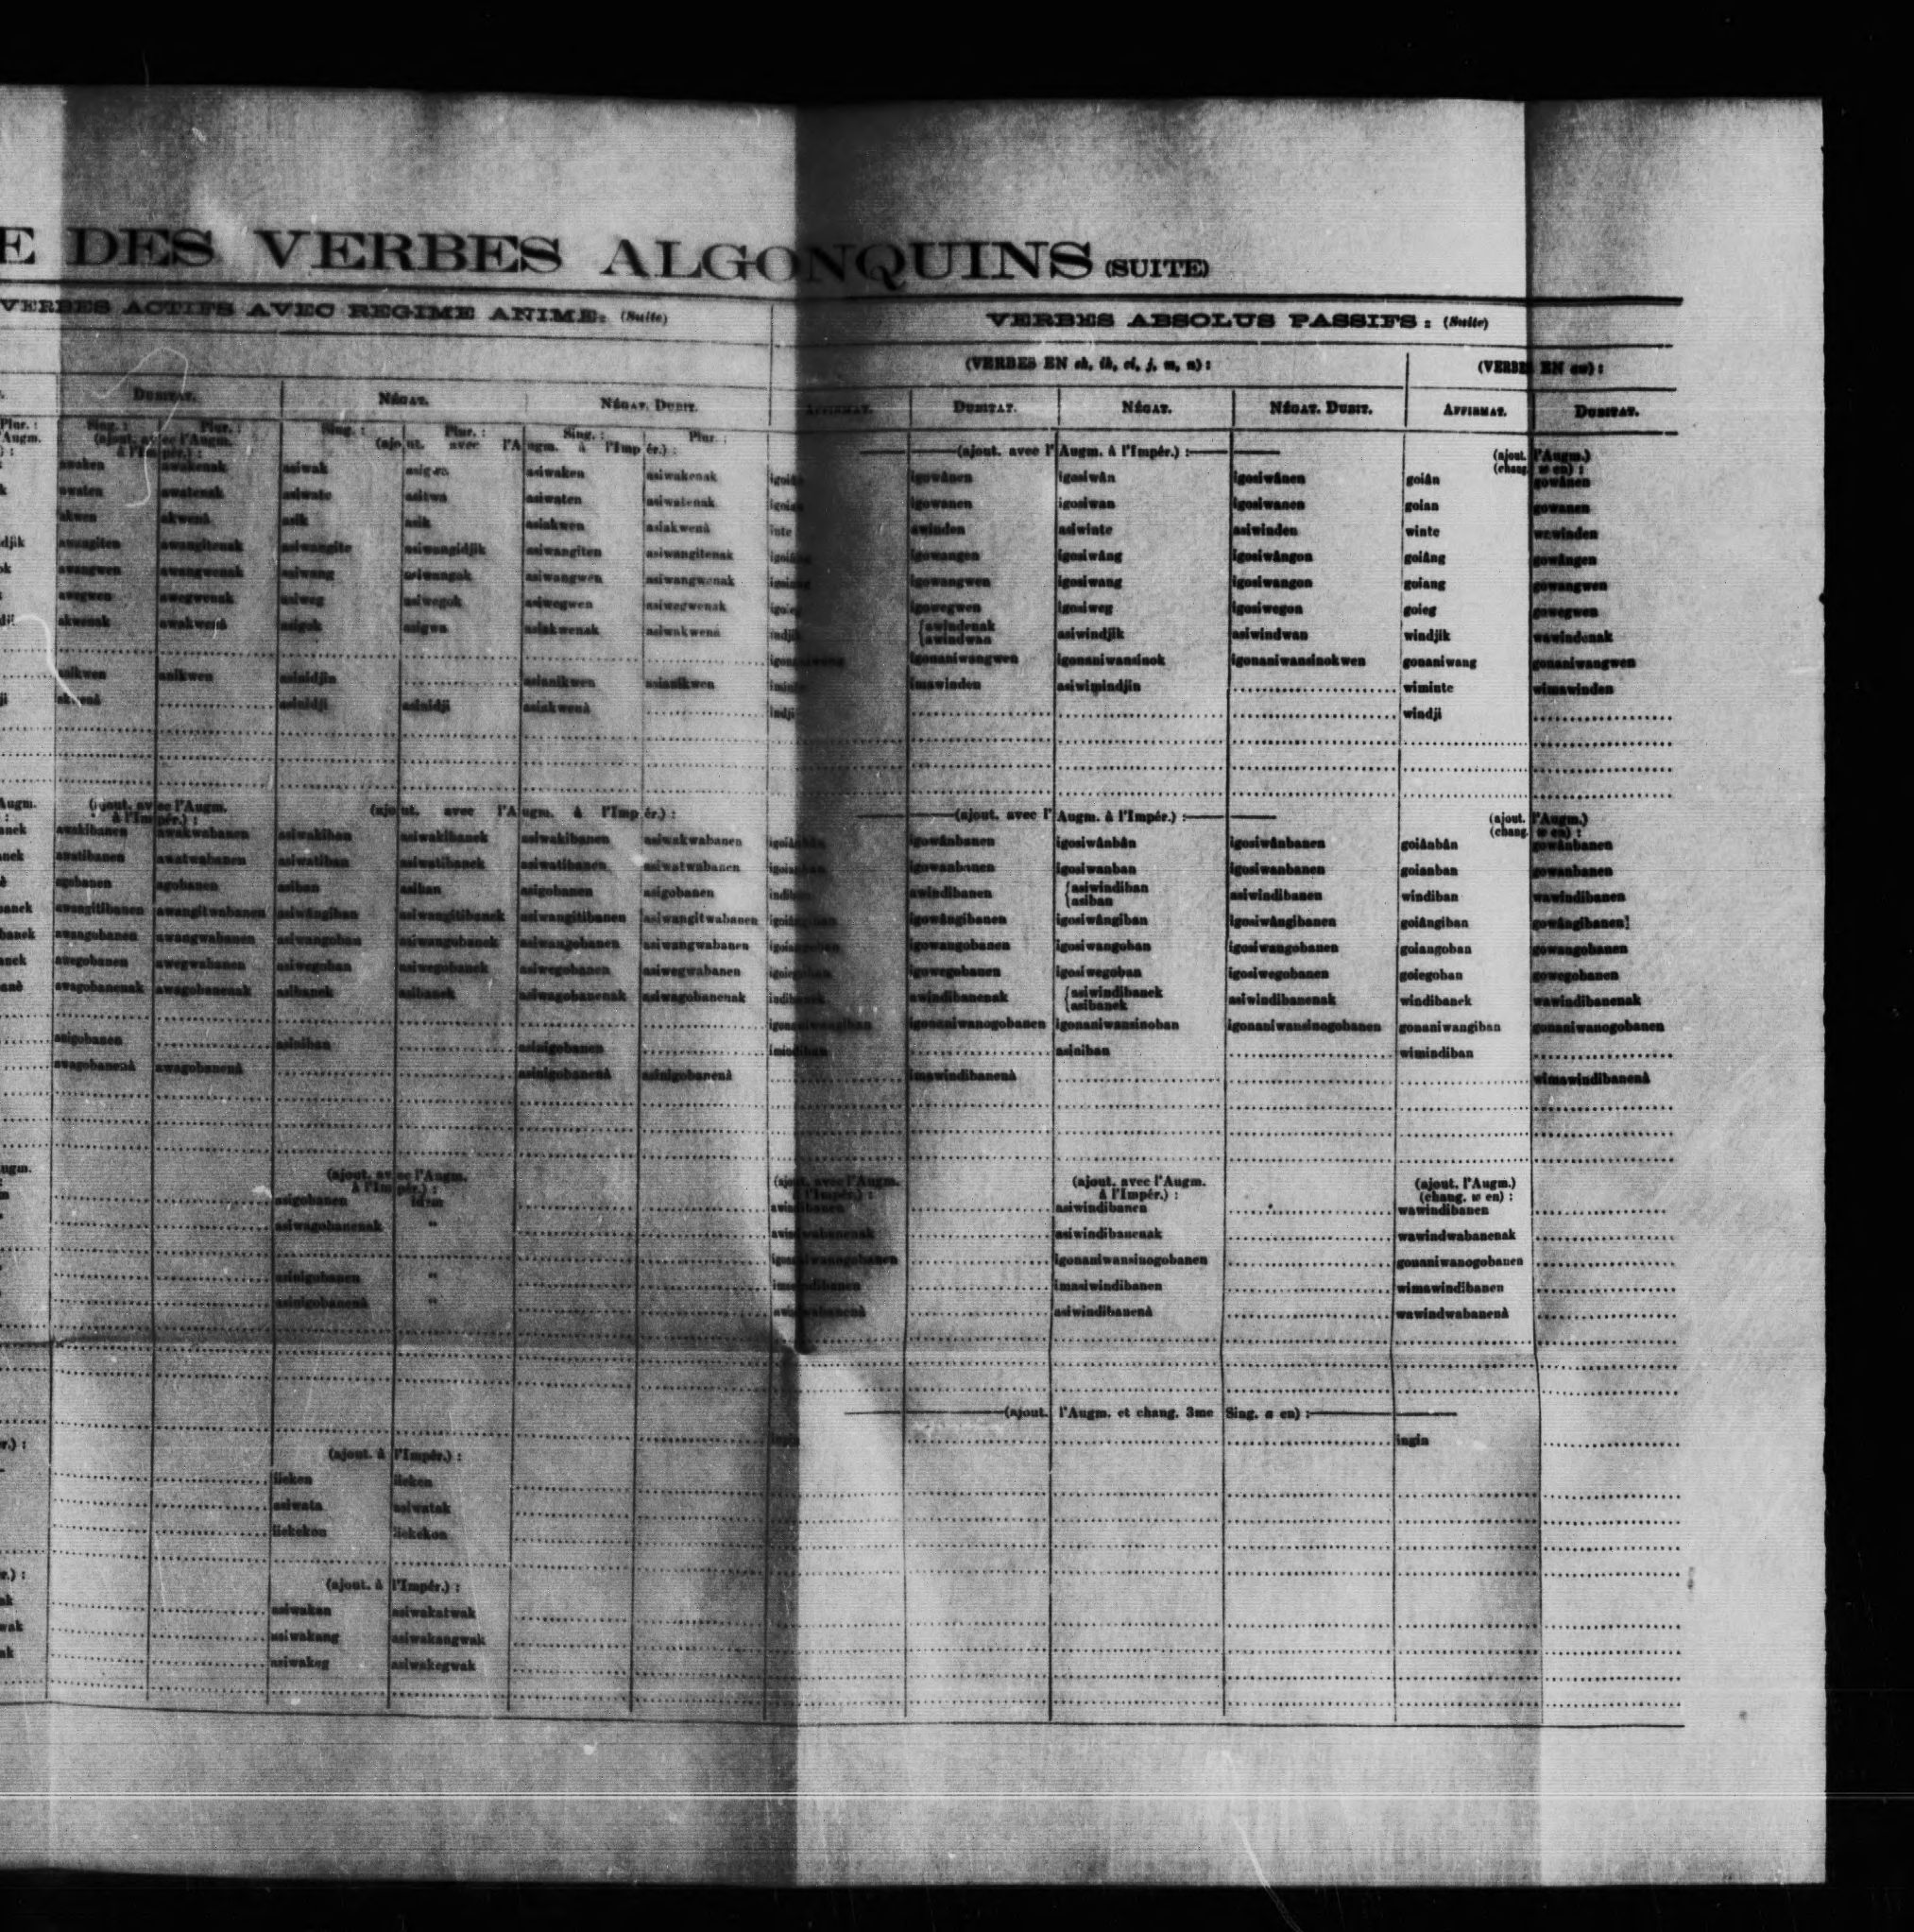 E DES VERBES ALGONQUINS (SUITE)
VERBES ACTIFS AVEC REGIME ANIME: (Suite) VERBES ABSOLUS PASSIFS : (Suite)
(VERBES EN ch, ih, ci, j, m, n) : (VERBES EN aw) :
DUBITAT. NÉGAT. NÉGAT. DUBIT. AFFIRMAT. DUBITAT. NÉGAT. NÉGAT. DUBIT. AFFIRMAT. DUBITAT.
Plur. : Sing. : Plur. : Sing. : Plur. : Sing. : Plur. :
Augm. (ajout. avec l'Augm. à l'Impér.) : (ajout. avec l'Augm. à l'Impér.) : (ajout. avec l'Augm. à l'Impér.) : (ajout. l'Augm.) (chang. w en) :
awaken awakenak asiwak asiwaken asiwakenak igoiân igowânen igosiwân igosiwânen goiân gowânen
k awaten awatenak asiwate asitwa asiwaten asiwatenak igoian igowanen igosiwan igosiwanen goian gowanen
akwen akwenà asik asik asiakwen asiakwenà inte awinden asiwinte asiwinden winte wawinden
djik awangiten awangitenak asiwangite asiwangidjik asiwangiten asiwangitenak igoiâng igowangen igosiwâng igosiwângon goiâng gowângen
ok awangwen awangwenak asiwang asiwangok asiwangwen asiwangwenak igoiang igowangwen igosiwang igosiwangon goiang gowangwen
awegwen awegwenak asiweg asiwegok asiwegwen asiwegwenak igoieg igowegwen igosiweg igosiwegon goieg gowegwen
akwenak awakwenà asigok asigwa asiakwenak asiwakwenà indjik {awindenak awindwan asiwindjik asiwindwan windjik wawindenak
igonaniwang igonaniwangwen igonaniwansinok igonaniwansinokwen gonaniwang gonaniwangwen
anikwen anikwen asinidjin asianikwen asianikwen iminte imawinden asiwimindjin wiminte wimawinden
ji akwenà asinidji asinidji asiakwenà indji windji
Augm. (ajout. avec l'Augm. à l'Impér.) : (ajout. avec l'Augm. à l'Impér.) : (ajout. avec l'Augm. à l'Impér.) : (ajout. l'Augm.) (chang. w en) :
anek awakibanen awakwabanen asiwakiban asiwakibanek asiwakibanen asiwakwabanen igoiânbân igowânbanen igosiwânbân igosiwânbanen goiânbân gowânbanen
anek awatibanen awatwabanen asiwatiban asiwatibanek asiwatibanen asiwatwabanen igoianban igowanbanen igosiwanban igosiwanbanen goianban gowanbanen
agobanen agobanen asiban asiban asigobanen asigobanen indiban awindibanen {asiwindiban asiban asiwindibanen windiban wawindibanen
banek awangitibanen awangitwabanen asiwângiban asiwangitibanek asiwangitibanen asiwangitwabanen igoiângiban igowângibanen igosiwângiban igosiwângibanen goiângiban gowângibanen
banek awangobanen awangwabanen asiwangoban asiwangobanek asiwangobanen asiwangwabanen igoiangoban igowangobanen igosiwangoban igosiwangobanen goiangoban gowangobanen
anek awegobanen awegwabanen asiwegoban asiwegobanek asiwegobanen asiwegwabanen igoiegoban igowegobanen igosiwegoban igosiwegobanen goiegoban gowegobanen
anè awagobanenak awagobanenak asibanek asibanek asiwagobanenak asiwagobanenak indibanek awindibanenak {asiwindibanek asibanek asiwindibanenak windibanek wawindibanenak
igonaniwangiban igonaniwanogobanen igonaniwansinoban igonaniwansinogobanen gonaniwangiban gonaniwanogobanen
anigobanen asiniban asinigobanen imindiban asiniban wimindiban
awagobanenà awagobanenà asinigobanenà asinigobanenà imawindibanenà wimawindibanenà
ugm. (ajout. avec l'Augm. à l'Impér.) : (ajout. avec l'Augm. à l'Impér.) : (ajout. avec l'Augm. à l'Impér.) : (ajout. l'Augm.) (chang. w en) :
asigobanen idem awindibanen asiwindibanen wawindibanen
asiwagobanenak " awindwabanenak asiwindibanenak wawindwabanenak
igonaniwanogobanen igonaniwansinogobanen gonaniwanogobanen
asinigobanen " imawindibanen imasiwindibanen wimawindibanen
asinigobanenà " awindwabanenà asiwindibanenà wawindwabanenà
(ajout. l'Augm. et chang. 3me Sing. a en) :
ingin ingin
r.) : (ajout. à l'Impér.) :
iieken iieken
asiwata asiwatak
iiekekon iiekekon
r.) : (ajout. à l'Impér.) :
ak asiwakan asiwakatwak
wak asiwakang asiwakangwak
ak asiwakeg asiwakegwak